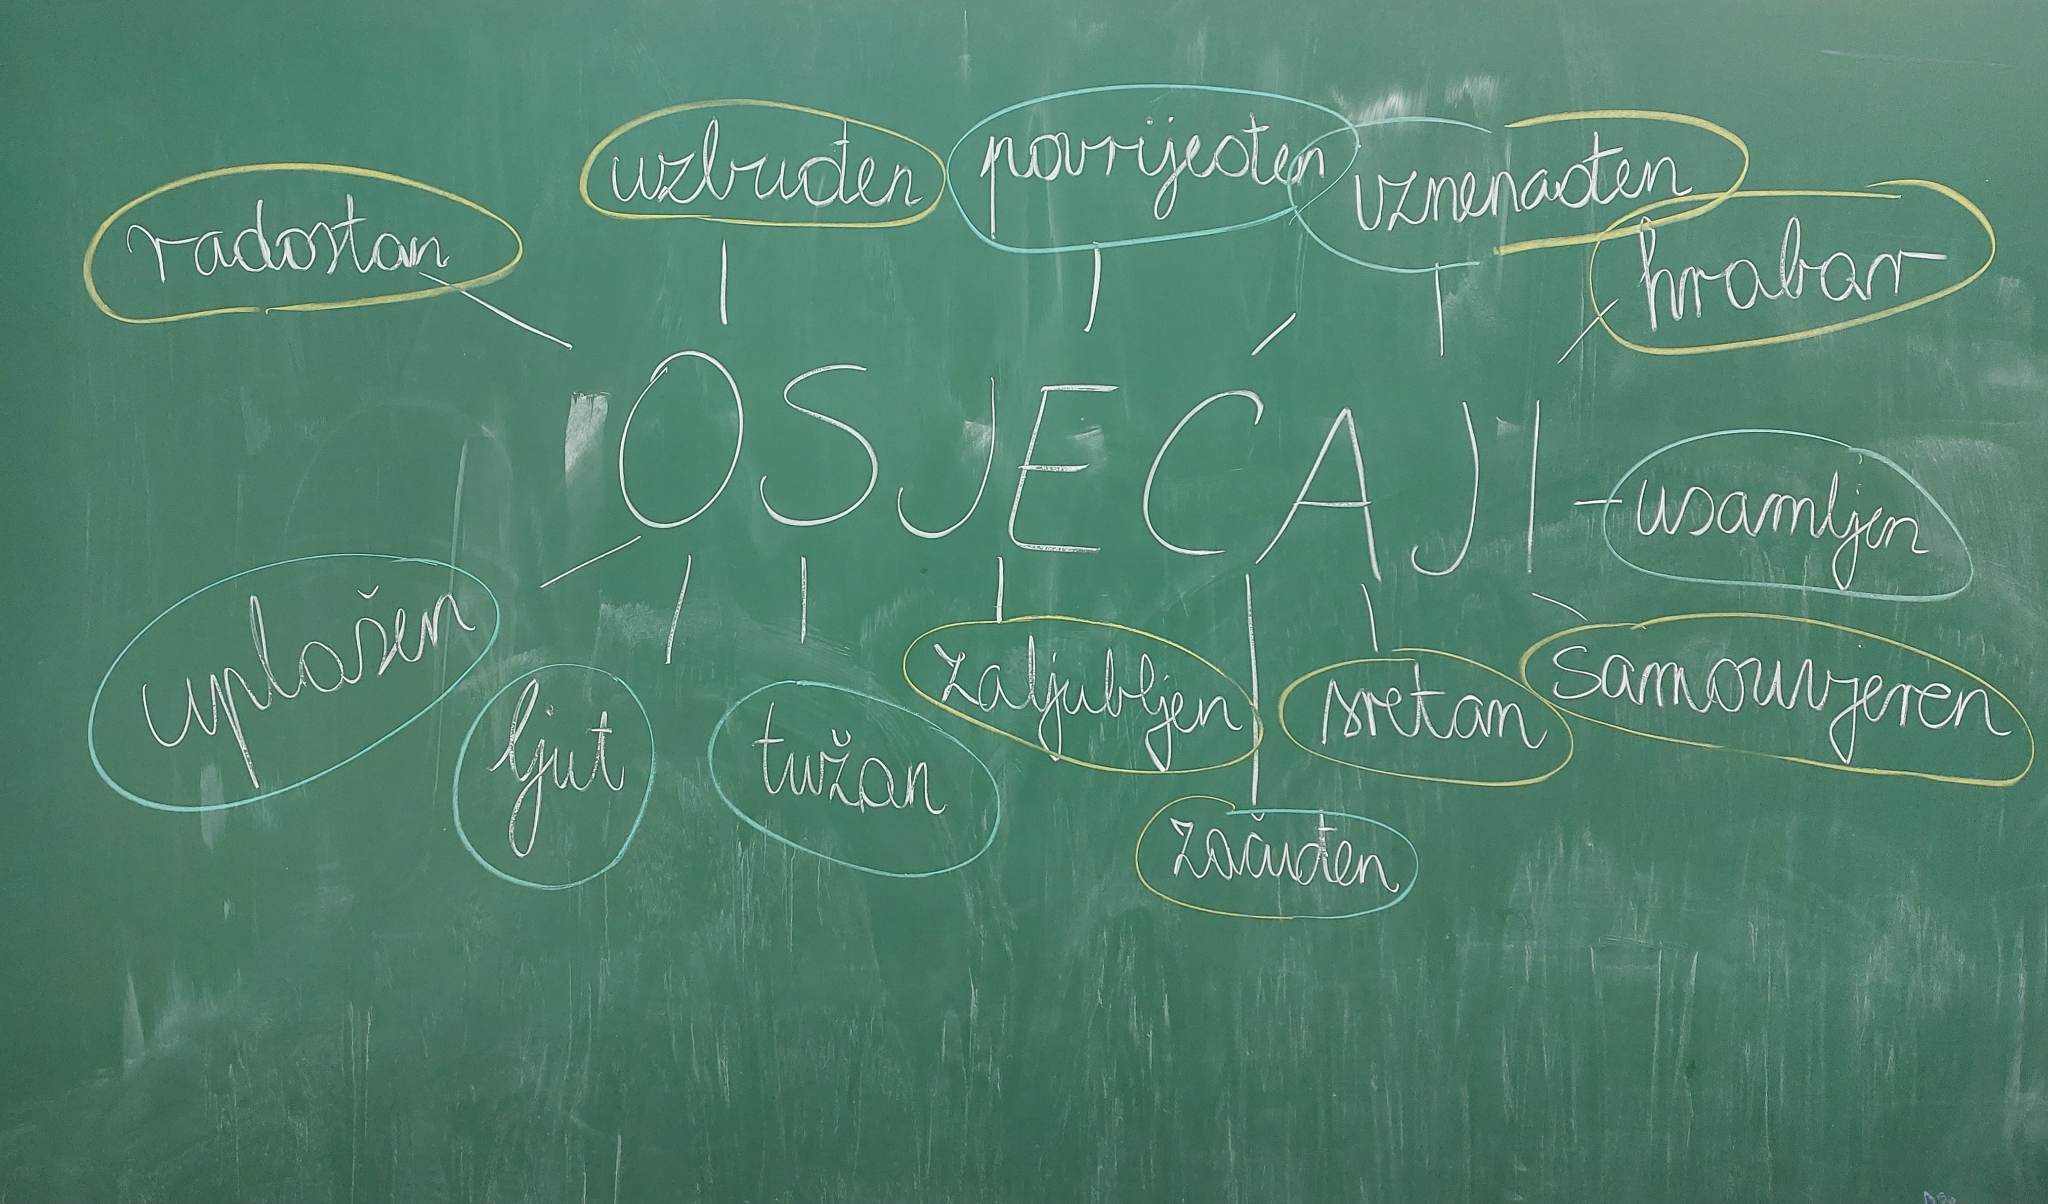 radostan
uzbuđen
povrijeđen
iznenađen
hrabar
OSJEĆAJI
usamljen
uplašen
ljut
tužan
zaljubljen
začuđen
sretan
samouvjeren